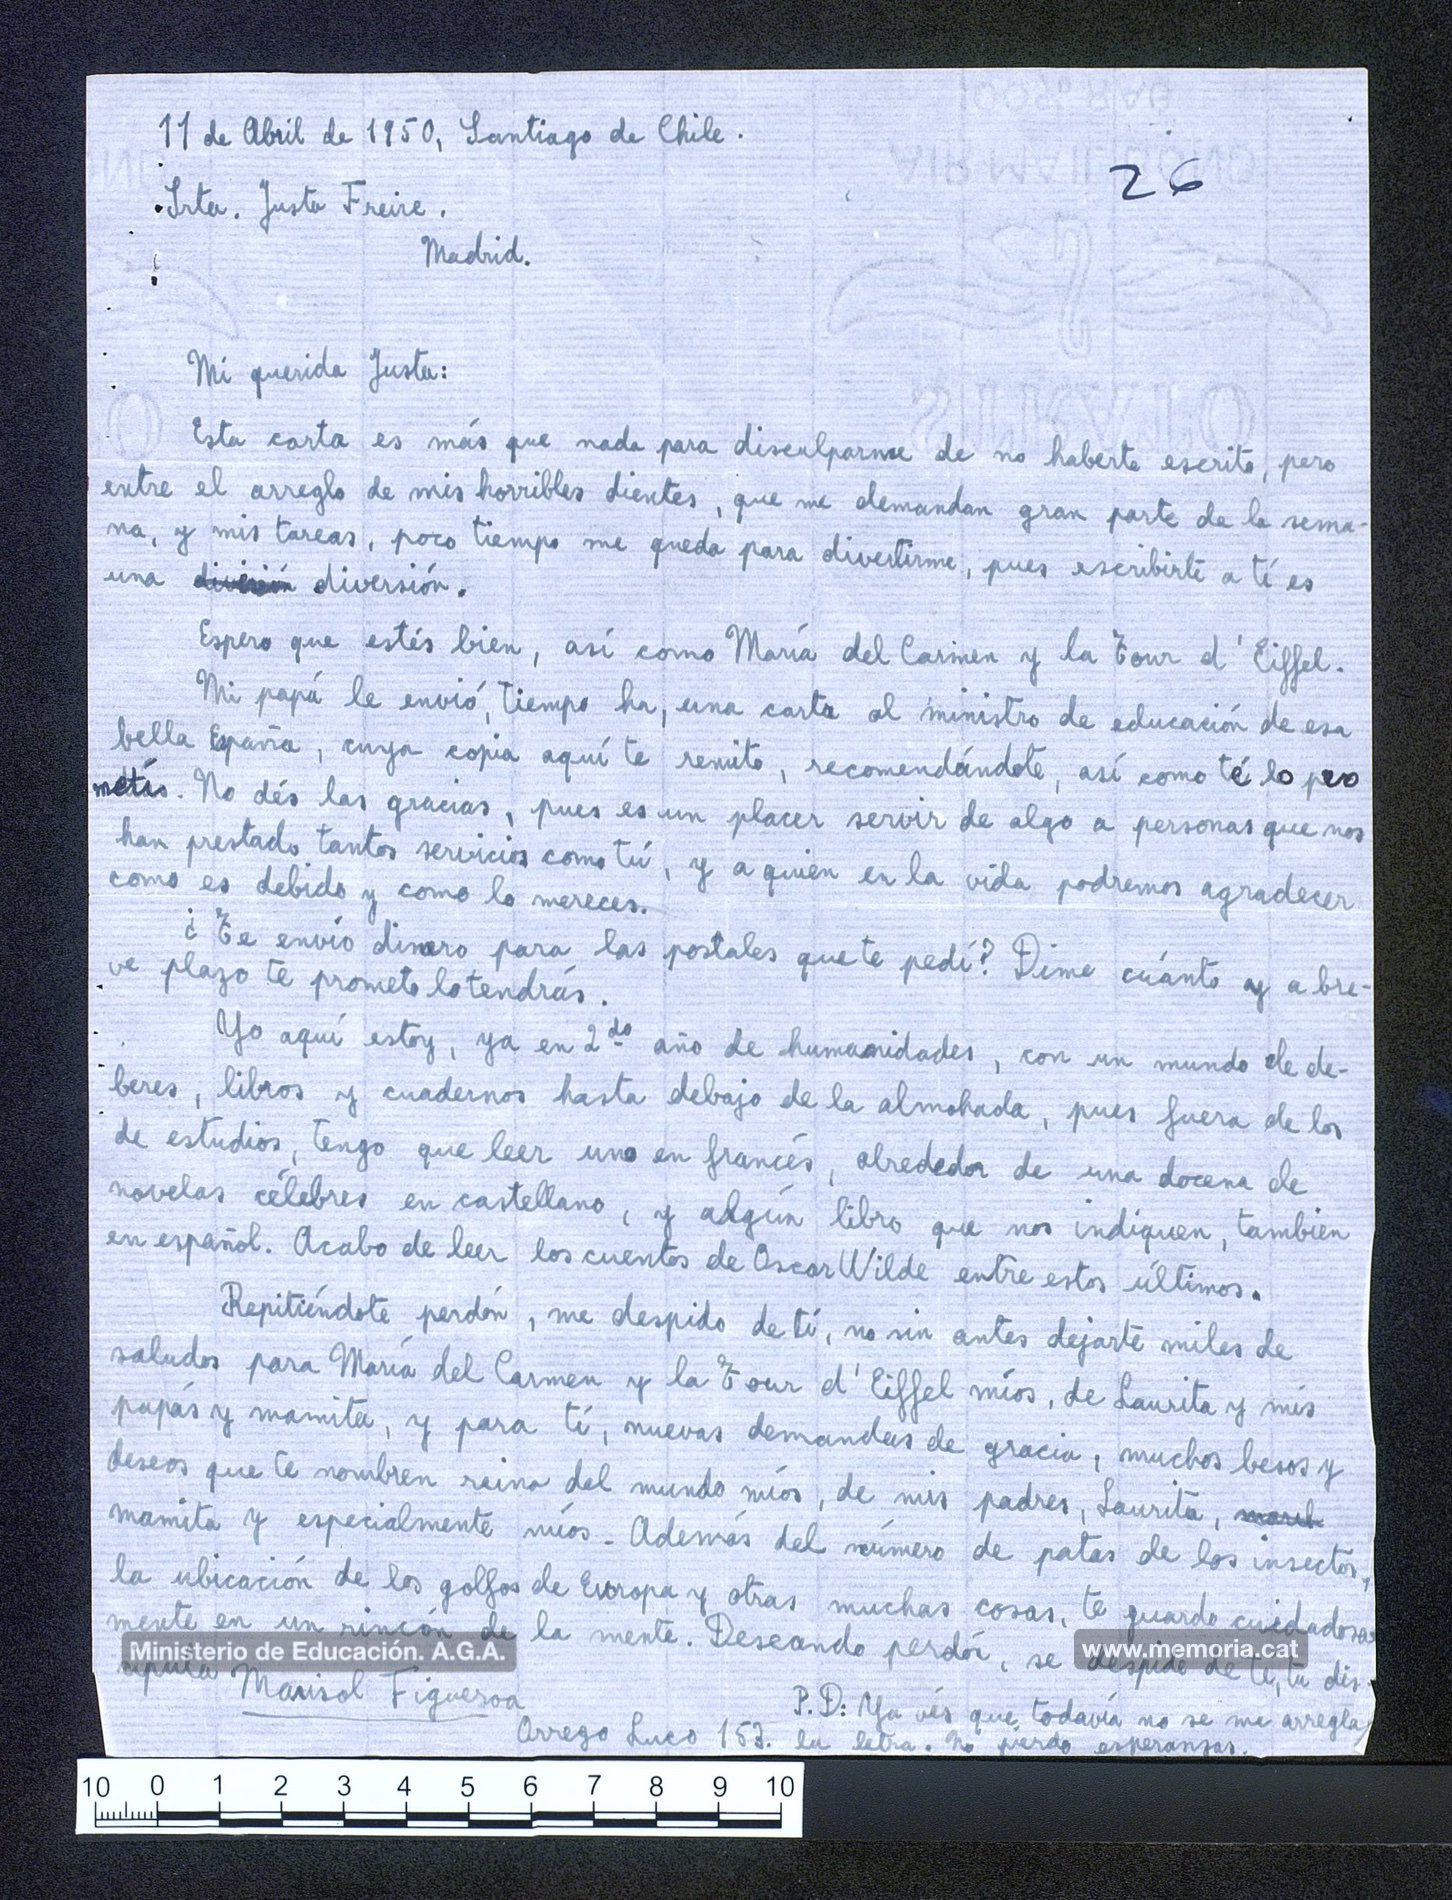 11 de Abril de 1950, Santiago de Chile.
26
Srta. Justa Freire.
Madrid.
Mi querida Justa:
Esta carta es más que nada para disculparme de no haberte escrito, pero
entre el arreglo de mis horribles dientes, que me demandan gran parte de la sema-
na, y mis tareas, poco tiempo me queda para divertirme, pues escribirte a tí es
una diversión diversión.
Espero que estés bien, así como María del Carmen y la Tour d' Eiffel.
Mi papá le envió, tiempo ha, una carta al ministro de educación de esa
bella España, cuya copia aquí te remito, recomendándote, así como té lo pro
metís. No dés las gracias, pues es un placer servir de algo a personas que nos
han prestado tantos servicios como tú, y a quien en la vida podremos agradecer
como es debido y como lo mereces.
¿Te envío dinero para las postales que te pedí? Dime cuánto y a bre-
ve plazo te prometo lo tendrás.
Yo aquí estoy, ya en 2do año de humanidades, con un mundo de de-
beres, libros y cuadernos hasta debajo de la almohada, pues fuera de los
de estudios, tengo que leer uno en francés, alrededor de una docena de
novelas célebres en castellano, y algún libro que nos indiquen, tambien
en español. Acabo de leer los cuentos de Oscar Wilde entre estos últimos.
Repitiéndote perdón, me despido de tí, no sin antes dejarte miles de
saludos para María del Carmen y la Tour d' Eiffel míos, de Laurita y mis
papás y mamita, y para tí, nuevas demandas de gracia, muchos besos y
deseos que te nombren reina del mundo míos, de mis padres, Laurita,
mamita y especialmente míos. Además del número de patas de los insectos,
la ubicación de los golfos de Europa y otras muchas cosas, te guardo cuidadosa
mente en un rincón de la mente. Deseando perdón, se despide de tí, tu dis-
cípula Marisol Figueroa
Arrego Luco 153.
P.D: Ya vés que todavía no se me arregla
la letra. No pierdo esperanzas.
Ministerio de Educación. A.G.A.
www.memoria.cat
10 0 1 2 3 4 5 6 7 8 9 10